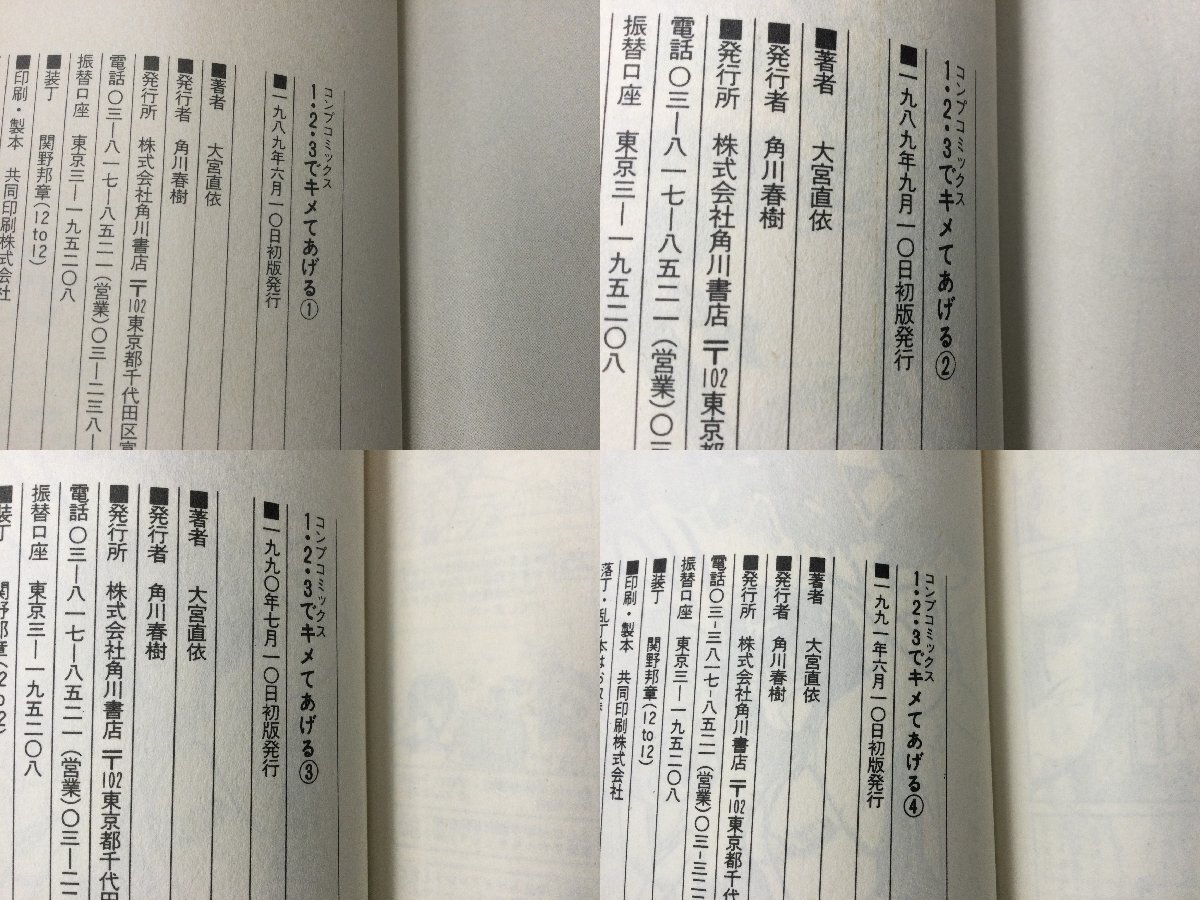 コンプコミックス
1・2・3でキメてあげる①
■一九八九年六月一〇日初版発行
■著者 大宮直依
■発行者 角川春樹
■発行所 株式会社角川書店 〒102東京都千代田区富
電話〇三―八一七―八五二一(営業)〇三―二三八―
振替口座 東京三―一九五二〇八
■装丁 関野邦章(12 to 12)
■印刷・製本 共同印刷株式会社
コンプコミックス
1・2・3でキメてあげる②
■一九八九年九月一〇日初版発行
■著者 大宮直依
■発行者 角川春樹
■発行所 株式会社角川書店 〒102東京都
電話〇三―八一七―八五二一(営業)〇三
振替口座 東京三―一九五二〇八
コンプコミックス
1・2・3でキメてあげる③
■一九九〇年七月一〇日初版発行
■著者 大宮直依
■発行者 角川春樹
■発行所 株式会社角川書店 〒102東京都千代田
電話〇三―八一七―八五二一(営業)〇三―二
振替口座 東京三―一九五二〇八
■装丁 関野邦章(12 to 12)
コンプコミックス
1・2・3でキメてあげる④
■一九九一年六月一〇日初版発行
■著者 大宮直依
■発行者 角川春樹
■発行所 株式会社角川書店 〒102東京都千代
電話〇三―三八一七―八五二一(営業)〇三―三二
振替口座 東京三―一九五二〇八
■装丁 関野邦章(12 to 12)
■印刷・製本 共同印刷株式会社
落丁・乱丁本はお